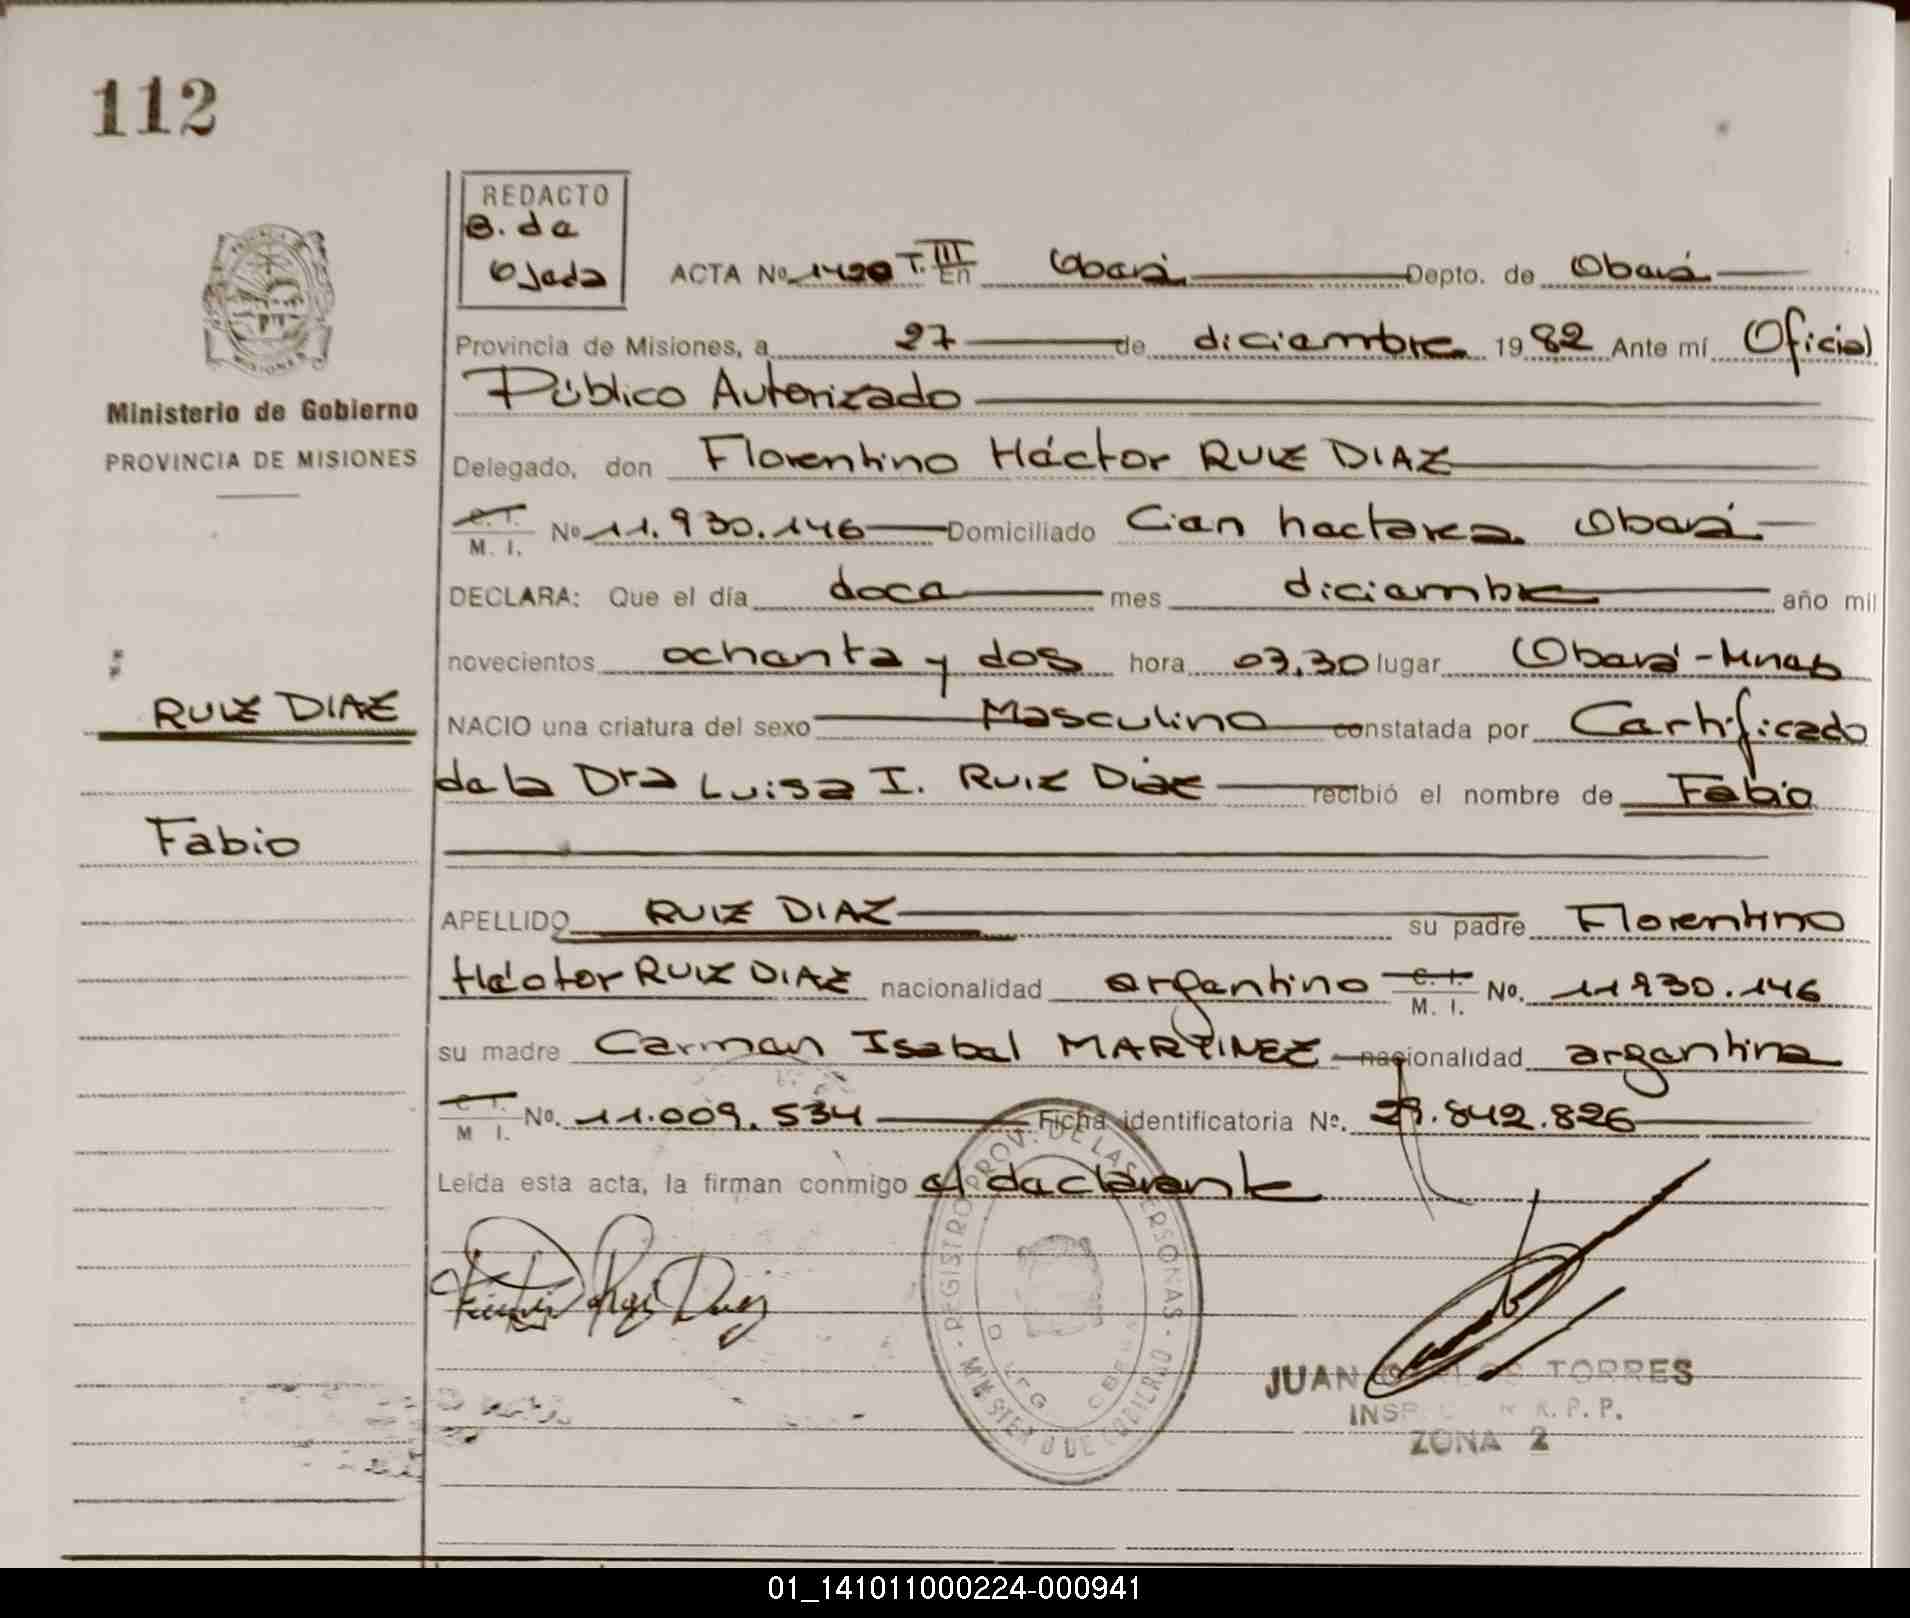 112
REDACTO
B. de
Ojeda
ACTA No 1420 T. III En Oberá Depto. de Oberá
Provincia de Misiones, a 27 de diciembre 1982 Ante mí Oficial
Público Autorizado
Ministerio de Gobierno
PROVINCIA DE MISIONES
Delegado, don Florentino Héctor RUIZ DIAZ
C. I.
M. I. No 11.930.146 Domiciliado Cien hectarea Oberá
DECLARA: Que el día doce mes diciembre año mil
novecientos ochenta y dos hora 03,30 lugar Oberá-Mnes
RUIZ DIAZ
NACIO una criatura del sexo Masculino constatada por Certificado
de la Dra Luisa I. Ruiz Diaz recibió el nombre de Fabio
Fabio
APELLIDO RUIZ DIAZ su padre Florentino
Héctor RUIZ DIAZ nacionalidad argentino C. I. M. I. No. 11930.146
su madre Carmen Isabel MARTINEZ nacionalidad argentina
C. I.
M I. No. 11.009.534 Ficha identificatoria No. 29.842.826
Leída esta acta, la firman conmigo el declarante
REGISTRO PROV. DE LAS PERSONAS
MINISTERIO DE GOBIERNO
JUAN CARLOS TORRES
R. P. P.
ZONA 2
01_141011000224-000941